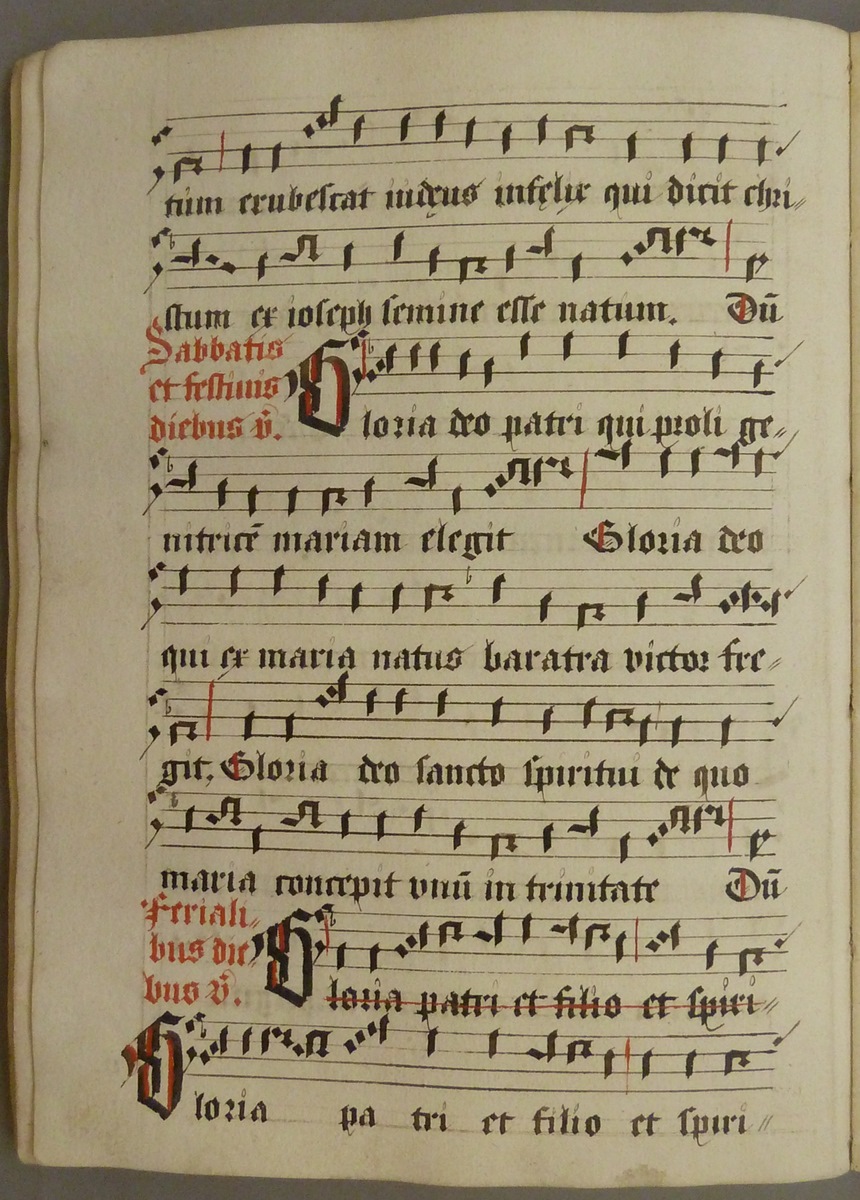 tum erubescat iudęus infęlix qui dicit chri〃
stum ex ioseph semine esse natum. Dū
Sabbatis
et festiuis
diebus v̄.
Gloria deo patri qui proli ge〃
nitricē mariam elegit Gloria deo
qui ex maria natus baratra victor fre〃
git. Gloria deo sancto spiritui de quo
maria concepit vnū in trinitate Dū
Feriali〃
bus die〃
bus v̄.
Gloria patri et filio et spiri〃
Gloria pa tri et filio et spiri〃